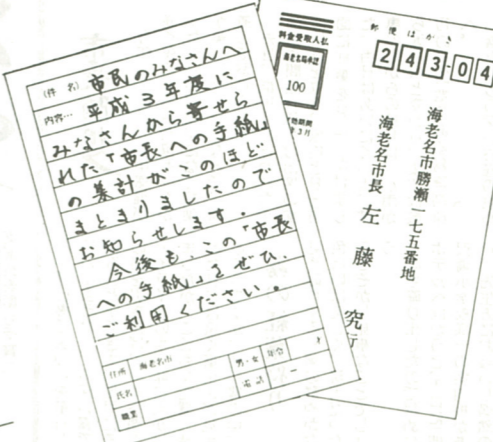 (件 名) 市民のみなさんへ
内容… 平成3年度に
みなさんから寄せら
れた「市長への手紙」
の集計がこのほど
まとまりましたので
お知らせします。
今後も、この「市長
への手紙」をぜひ、
ご利用ください。
住所 海老名市
氏名 男・女 年令
職業 電話 －
郵便はがき
料金受取人払
海老名局承認
100
243-04
海老名市勝瀬一七五番地
海老名市長 左藤 究行